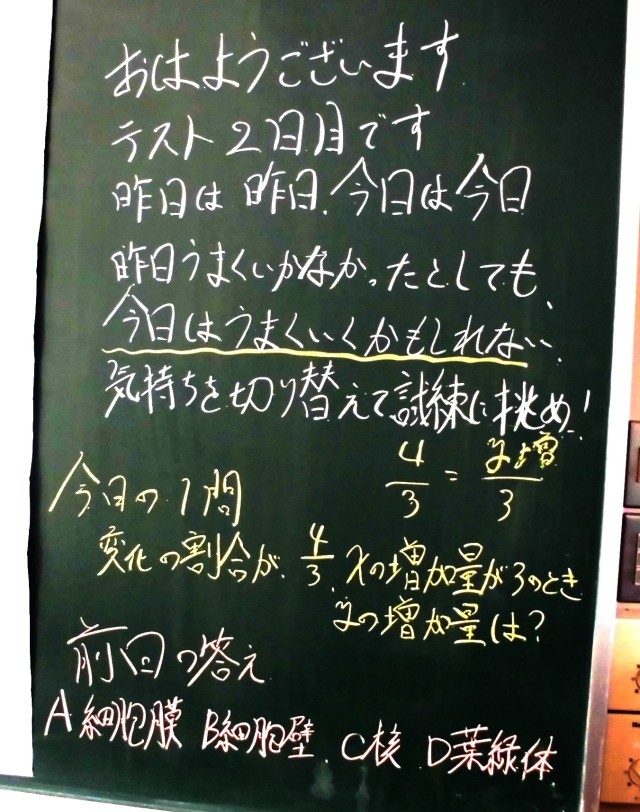 おはようございます
テスト2日目です
昨日は昨日、今日は今日
昨日うまくいかなかったとしても、
今日はうまくいくかもしれない。
気持ちを切り替えて試練に挑め!
今日の1問
4/3 = yの増/3
変化の割合が 4/3、xの増加量が3のとき
yの増加量は?
前回の答え
A細胞膜 B細胞壁 C核 D葉緑体